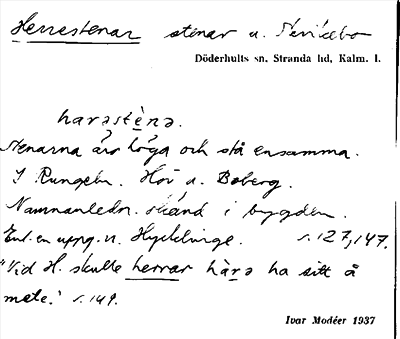 Herrestenar stenar u. Århulebo
Döderhults sn. Stranda hd, Kalm. l.
harəstènə.
Stenarna äro höga och stå ensamma.
I Rungeln. Hör u. Boberg.
Namnanledn. okänd i bygden.
Enl. en uppg. u. Hycklinge. s. 127, 147.
"Vid H. skulle herrar hàrə ha sitt å
mete." s. 149.
Ivar Modéer 1937